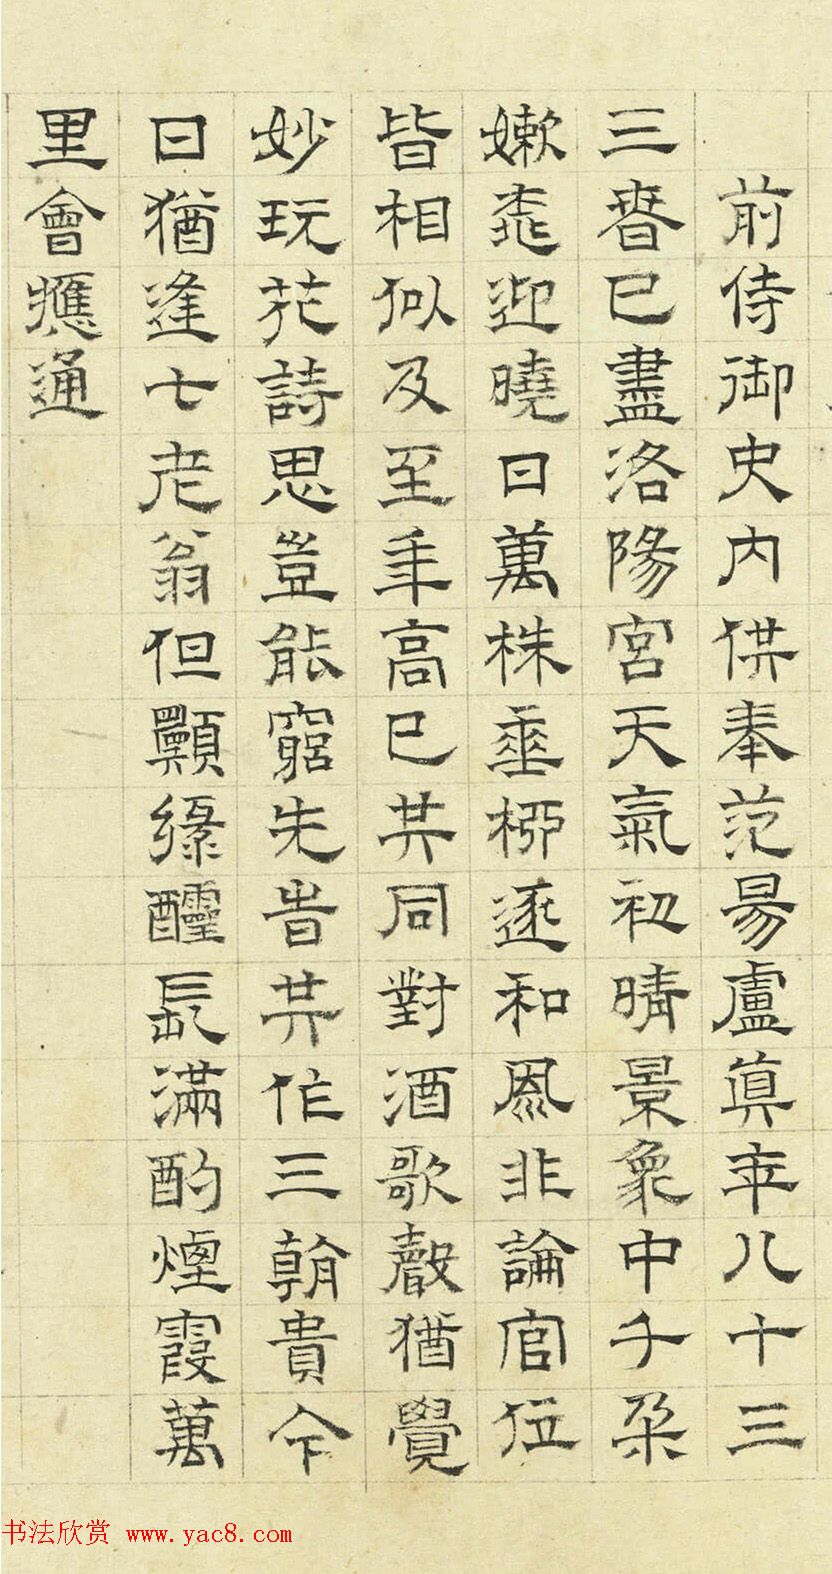 前侍御史内供奉范昜盧真年八十三
三春已盡洛陽宮天氣初晴景象中千朵
嫩桃迎曉日萬株垂柳逐和風非論官位
皆相似及至年高已共同對酒歌聲猶覺
妙玩花詩思豈能窮先時共作三朝貴今
日猶逢七老翁但願綠醽長滿酌煙霞萬
里會應通
书法欣赏 www.yac8.com